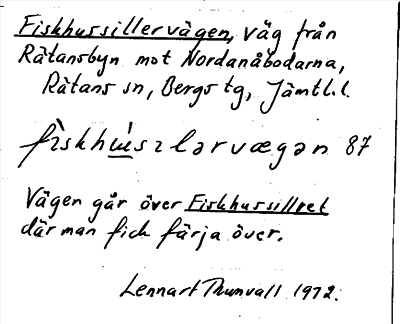 Fiskhussillervägen, väg från
Rätansbyn mot Nordanåbodarna,
Rätans sn, Bergs tg, Jämtl.l.
fìskhu̠ːsɪlərvægən 87
Vägen går över Fiskhussillret
där man fick färja över.
Lennart Thunvall 1972.